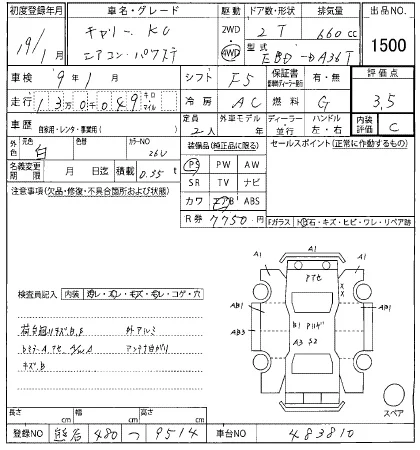 初度登録年月 車名・グレード 駆動 ドア数・形状 排気量 出品NO.
19/1月 キャリー KC 2WD・4WD 2 T 660cc 1500
エアコン・パワステ 型式 EBD-DA63T
車検 9年1月 シフト F5 保証書 有・無 評価点
走行 13万0千049キロ マイル 冷房 AC 燃料 G 3.5
車歴 自家用・レンタ・事業用( ) 定員 2人 外車モデル 年 ディーラー・並行 ハンドル 左・右 内装評価 C
外色 元色 白 色替 カラーNO 26U 装備品(純正品に限る) セールスポイント(正常に作動するもの)
名義変更期限 月 日迄 積載 0.35t PS PW AW
SR TV ナビ
注意事項(欠品・修復・不具合箇所および状態) カワ エアB ABS
R券 7750円 Fガラス・飛石・キズ・ヒビ・ワレ・リペア跡
A1 A1 A1
アセ
検査員記入 内装 コゲ・穴 AB1 B1
荷台廻りキズB,S 外アルミ AB3 B1
アンテナ曲がり A3 S2
キズ、B
A1
スペア
長さ cm 幅 cm 高さ cm
登録NO 480 つ 9514 車台NO 483810